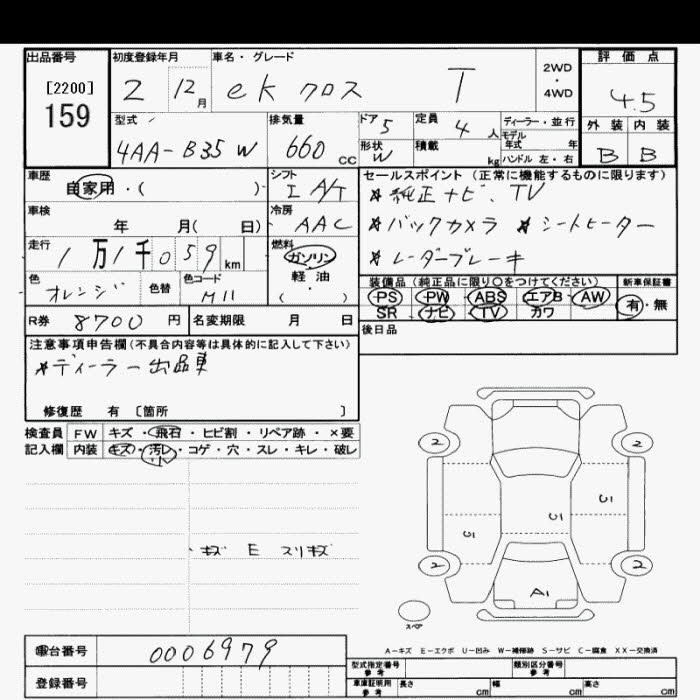 出品番号 初度登録年月 車名・グレード 評価点
[2200]
159
2 12月 eK クロス T 2WD・4WD 4.5
型式 排気量 ドア 定員 ディーラー・並行 外装 内装
4AA-B35W 660cc 5 4人 モデル年式 年 B B
形状 積載
W kg ハンドル 左・右
車歴 シフト セールスポイント (正常に機能するものに限ります)
自家用・( ) I A/T *純正ナビ、TV
車検 冷房
年 月( 日) AAC *バックカメラ *シートヒーター
走行 燃料
1万1千059km ガソリン *レーダーブレーキ
軽・油
・
( )
色 色替 色コード 装備品 (純正品に限り○をつけてください) 新車保証書
オレンジ M11 PS PW ABS エアB AW 有・無
SR ナビ TV カワ
R券 8700円 名変期限 月 日 後日品
注意事項申告欄(不具合内容等は具体的に記入して下さい)
*ディーラー出品車
修復歴 有 〔箇所 〕
検査員 FW キズ・飛石・ヒビ割・リペア跡・×要
記入欄 内装 キズ・汚レ・コゲ・穴・スレ・キレ・破レ
小
2 2
U1
U1
U1
キズ E スリキズ
2 2
A1
スペア
A-キズ E-エクボ U-凹み W-補修跡 S-サビ C-腐食 XX-交換済
車台番号 0006979
型式指定番号 参考 類別区分番号 参考
登録番号
車庫証明用 参考 長さ cm 幅 cm 高さ cm